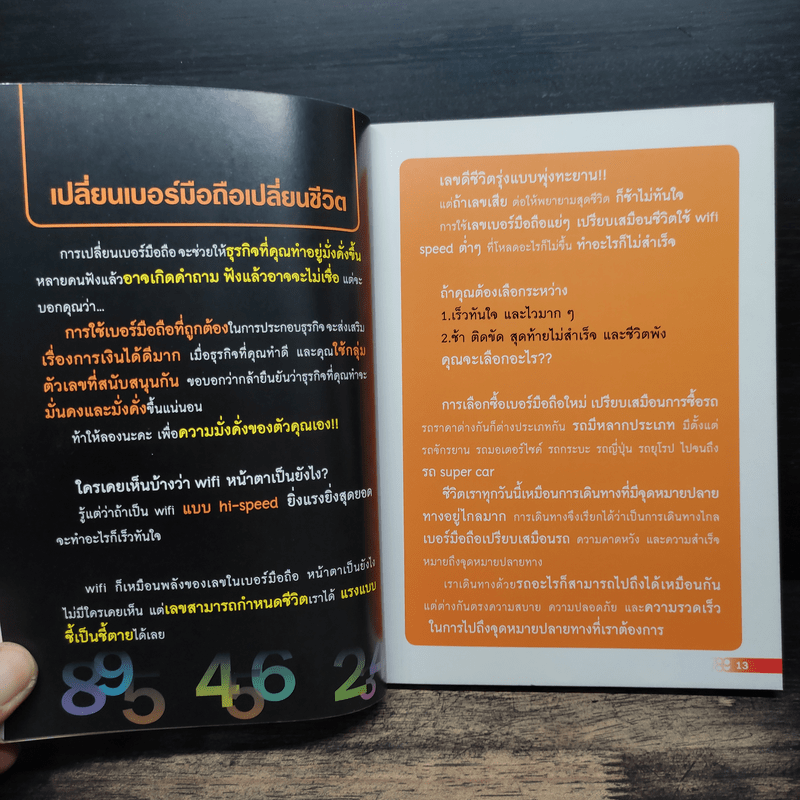 เปลี่ยนเบอร์มือถือเปลี่ยนชีวิต
การเปลี่ยนเบอร์มือถือ จะช่วยให้ธุรกิจที่คุณทำอยู่มั่งดั่งขึ้น
หลายคนฟังแล้วอาจเกิดคำถาม ฟังแล้วอาจจะไม่เชื่อ แต่จะ
บอกคุณว่า...
การใช้เบอร์มือถือที่ถูกต้องในการประกอบธุรกิจ จะส่งเสริม
เรื่องการเงินได้ดีมาก เมื่อธุรกิจที่คุณทำดี และคุณใช้กลุ่ม
ตัวเลขที่สนับสนุนกัน ขอบอกว่ากล้ายืนยันว่าธุรกิจที่คุณทำจะ
มั่นคงและมั่งคั่งขึ้นแน่นอน
ท้าให้ลองนะคะ เพื่อความมั่งคั่งของตัวคุณเอง!!
ใครเคยเห็นบ้างว่า wifi หน้าตาเป็นยังไง?
รู้แต่ว่าถ้าเป็น wifi แบบ hi-speed ยิ่งแรงยิ่งสุดยอด
จะทำอะไรก็เร็วทันใจ
wifi ก็เหมือนพลังของเลขในเบอร์มือถือ หน้าตาเป็นยังไง
ไม่มีใครเคยเห็น แต่เลขสามารถกำหนดชีวิตเราได้ แรงแบบ
ชี้เป็นชี้ตายได้เลย
895 456 254
เลขดีชีวิตรุ่งแบบพุ่งทะยาน!!
แต่ถ้าเลขเสีย ต่อให้พยายามสุดชีวิต ก็ช้าไม่ทันใจ
การใช้เลขเบอร์มือถือแย่ๆ เปรียบเสมือนชีวิตใช้ wifi
speed ต่ำๆ ที่โหลดอะไรก็ไม่ขึ้น ทำอะไรก็ไม่สำเร็จ
ถ้าคุณต้องเลือกระหว่าง
1.เร็วทันใจ และไวมาก ๆ
2.ช้า ติดขัด สุดท้ายไม่สำเร็จ และชีวิตพัง
คุณจะเลือกอะไร??
การเลือกซื้อเบอร์มือถือใหม่ เปรียบเสมือนการซื้อรถ
รถราคาต่างกันก็ต่างประเภทกัน รถมีหลากประเภท มีตั้งแต่
รถจักรยาน รถมอเตอร์ไซด์ รถกระบะ รถญี่ปุ่น รถยุโรป ไปจนถึง
รถ super car
ชีวิตเราทุกวันนี้เหมือนการเดินทางที่มีจุดหมายปลาย
ทางอยู่ไกลมาก การเดินทางจึงเรียกได้ว่าเป็นการเดินทางไกล
เบอร์มือถือเปรียบเสมือนรถ ความคาดหวัง และความสำเร็จ
หมายถึงจุดหมายปลายทาง
เราเดินทางด้วยรถอะไรก็สามารถไปถึงได้เหมือนกัน
แต่ต่างกันตรงความสบาย ความปลอดภัย และความรวดเร็ว
ในการไปถึงจุดหมายปลายทางที่เราต้องการ
13